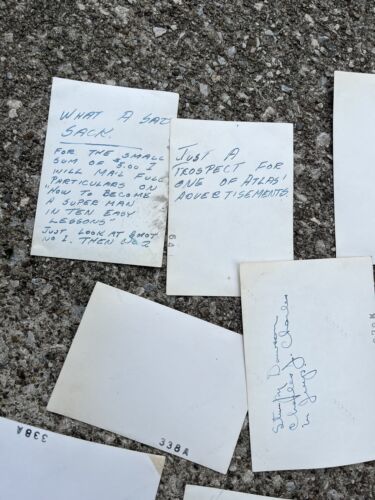 WHAT A SAD
SACK.
FOR THE SMALL
SUM OF 5.00 I
WILL MAIL FULL
PARTICULARS ON
"HOW TO BECOME
A SUPER MAN
IN TEN EASY
LESSONS"
JUST LOOK AT
NO 1. THEN NO. 2
JUST A
PROSPECT FOR
ONE OF ATLAS'
ADVERTISEMENTS.
Charles J. Charles
in Jeep
338A
338A